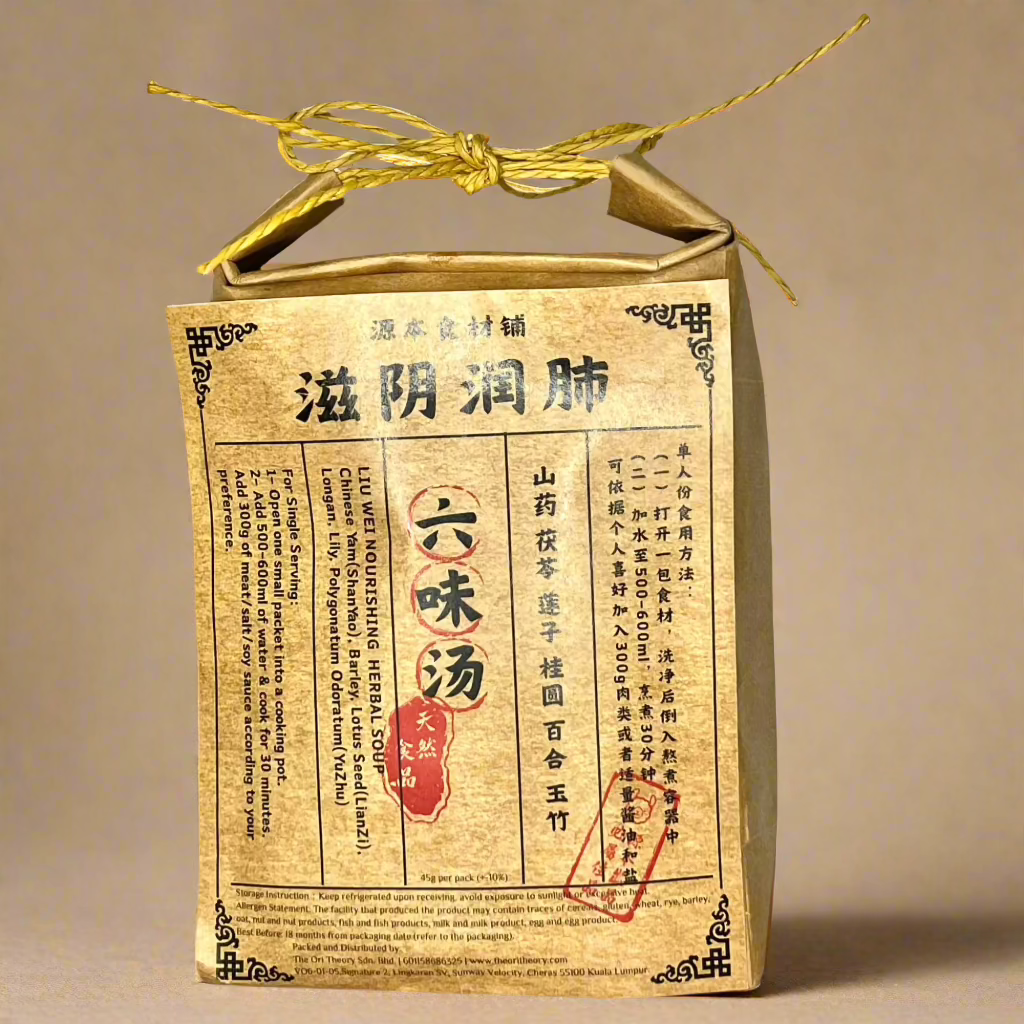 源本食材铺
滋阴润肺
单人份食用方法：
（一）打开一包食材，洗净后倒入熬煮容器中
（二）加水至500-600ml，烹煮30分钟
可依据个人喜好加入300g肉类或者适量酱油和盐
山药 茯苓 莲子 桂圆 百合 玉竹
六味汤
天然
食品
LIU WEI NOURISHING HERBAL SOUP
Chinese Yam(ShanYao), Barley, Lotus Seed(LianZi),
Longan, Lily, Polygonatum Odoratum(YuZhu)
For Single Serving:
1- Open one small packet into a cooking pot.
2- Add 500-600ml of water & cook for 30 minutes.
Add 300g of meat/salt/soy sauce according to your
preference.
45g per pack (+-10%)
Storage Instruction : Keep refrigerated upon receiving, avoid exposure to sunlight or excessive heat.
Allergen Statement: The facility that produced the product may contain traces of cereal, gluten, wheat, rye, barley,
oat, nut and nut products, fish and fish products, milk and milk product, egg and egg product.
Best Before: 18 months from packaging date (refer to the packaging).
Packed and Distributed by:
The Ori Theory Sdn. Bhd. | 601158686325 | www.theoritheory.com
VO6-01-05,Signature 2, Lingkaran SV, Sunway Velocity, Cheras 55100 Kuala Lumpur